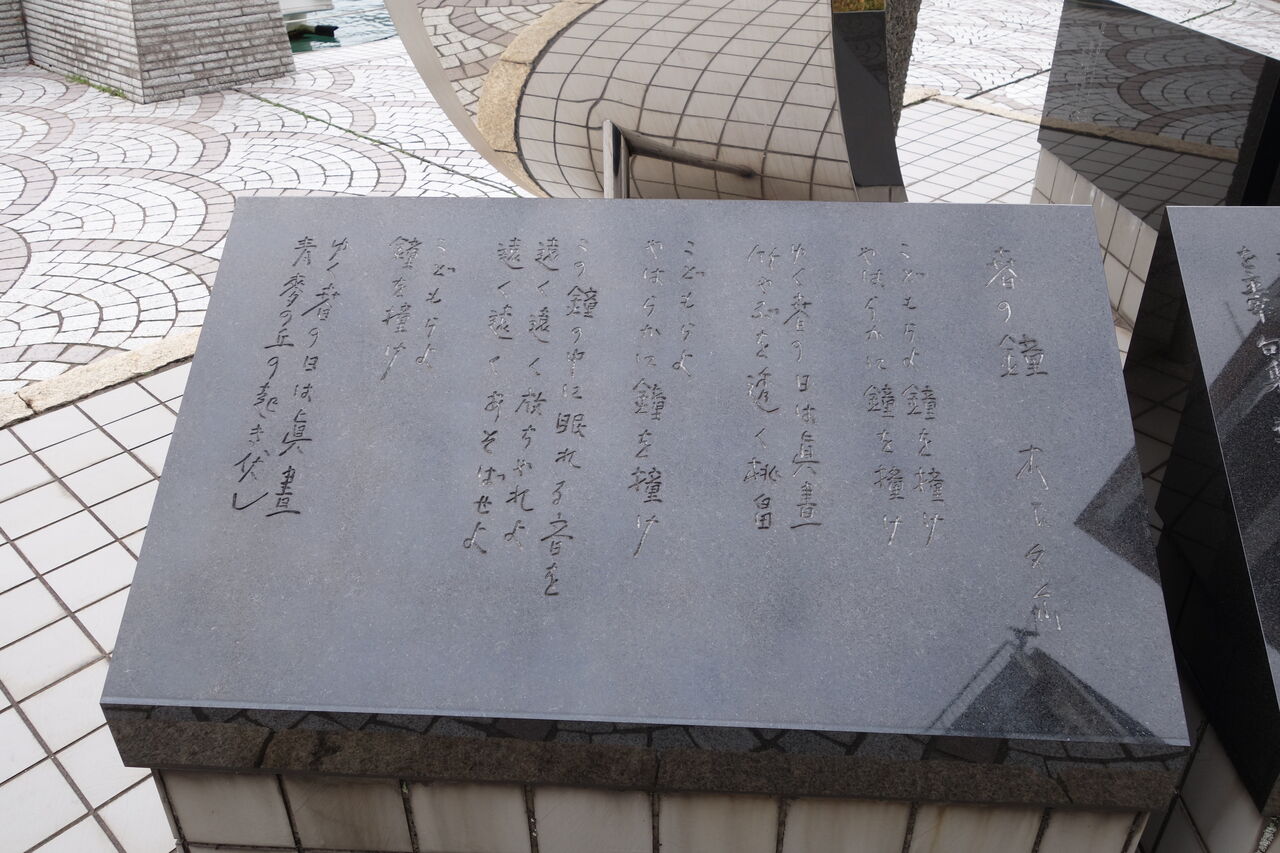 春の鐘 木下夕爾
こどもらよ 鐘を撞け
やはらかに鐘を撞け
ゆく春の日は眞晝
竹やぶを透く桃畠
こどもらよ
やはらかに鐘を撞け
この鐘の中に眠れる音を
遠く遠く放ちやれよ
遠く遠くあそばせよ
こどもらよ
鐘を撞け
ゆく春の日は眞晝
青麥の丘の起き伏し